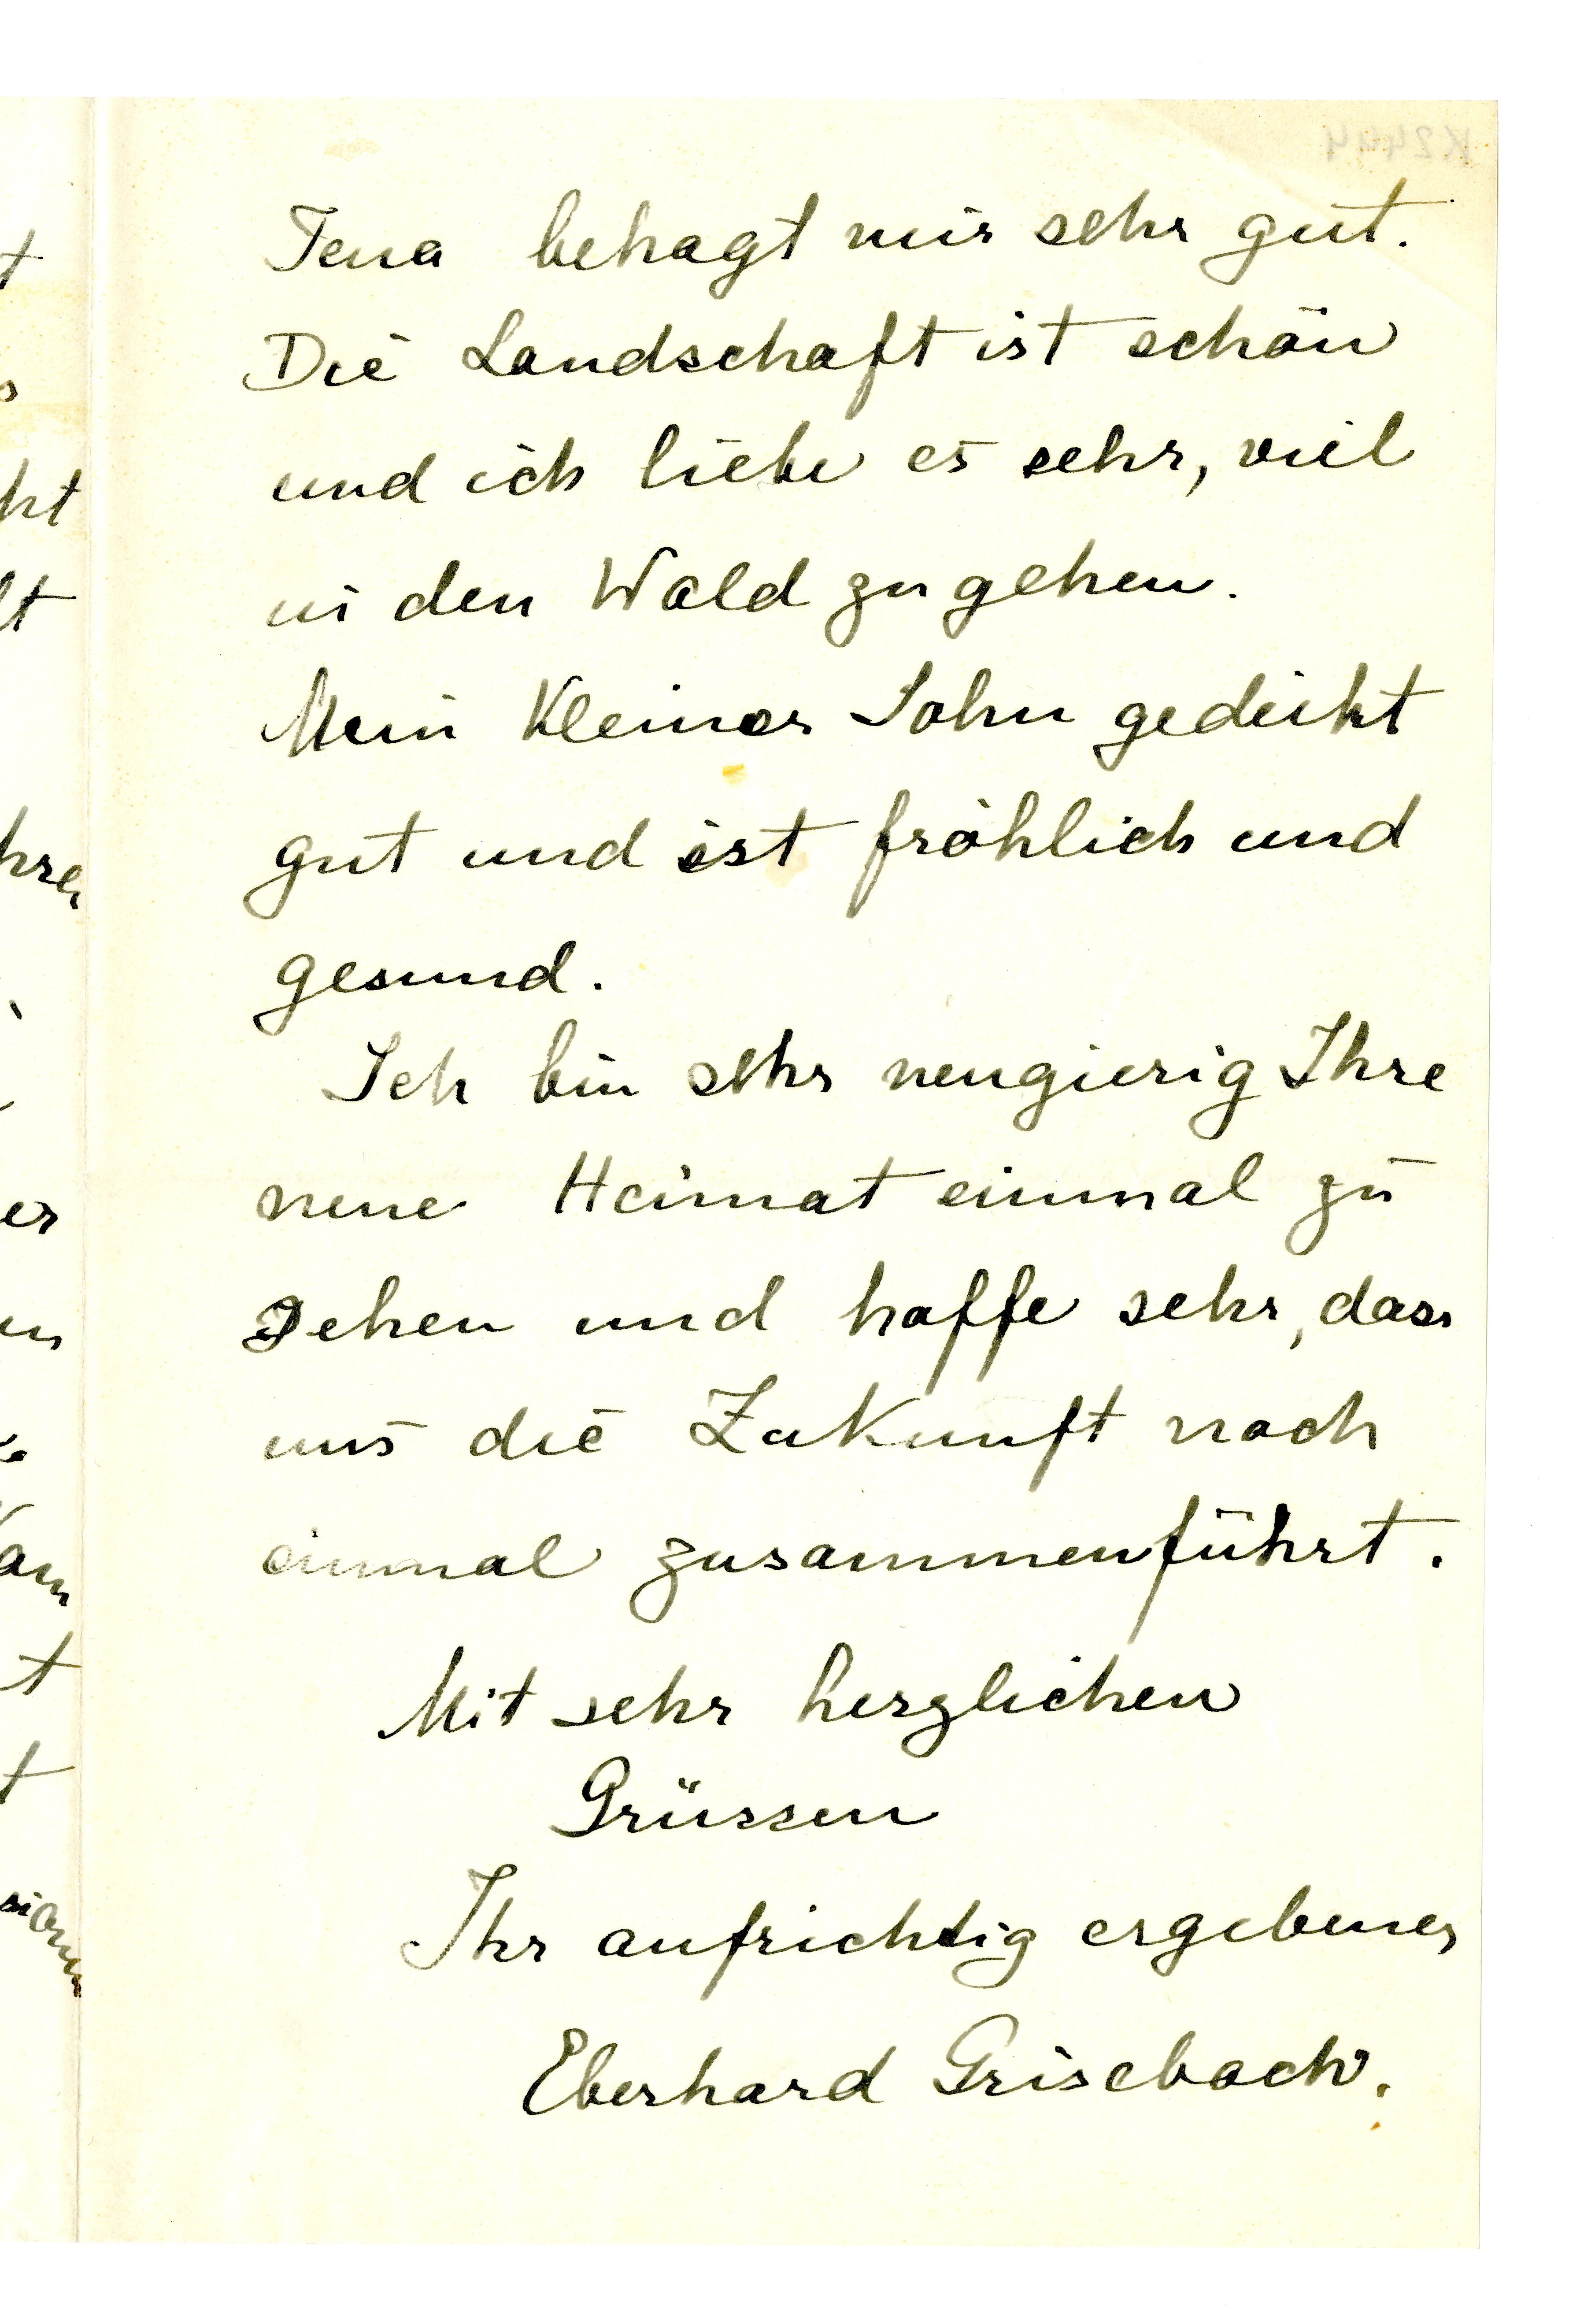 Jena behagt mir sehr gut.
Die Landschaft ist schön
und ich liebe es sehr, viel
in den Wald zu gehen.
Mein Kleiner Sohn gedeiht
gut und ist fröhlich und
gesund.
Ich bin sehr neugierig Ihre
neue Heimat einmal zu
sehen und hoffe sehr, dass
uns die Zukunft noch
einmal zusammenführt.
Mit sehr herzlichen
Grüssen
Ihr aufrichtig ergebener
Eberhard Grisebach.
K2444